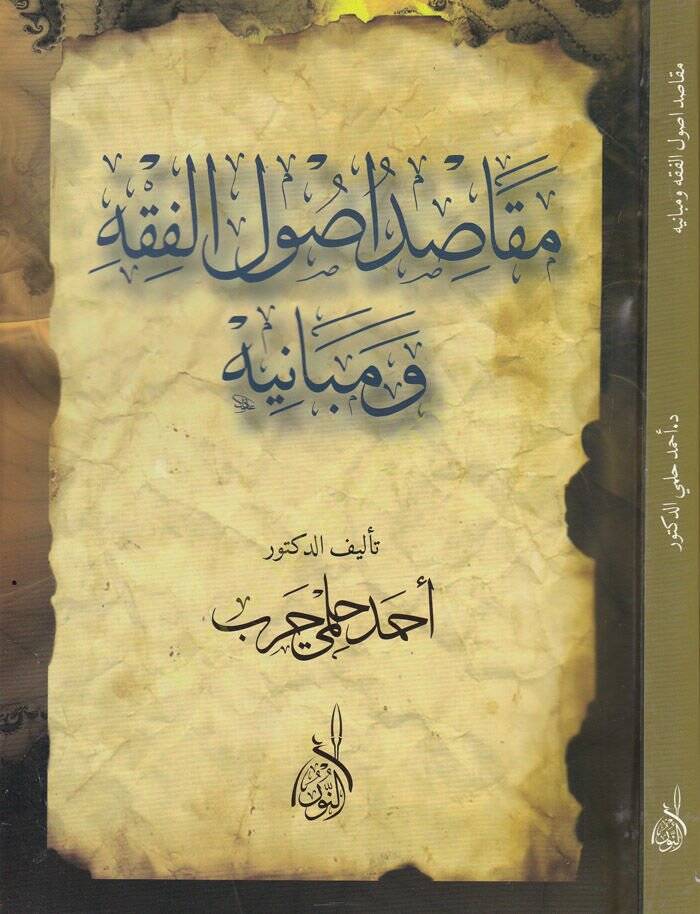 مَقَاصِدُ اُصُولِ الفِقْهِ
وَمَبَانِيهِ
تأليف الدكتور
أحمد حلمي حرب
النُّور
مقاصد اصول الفقه ومبانيه
د.أحمد حلمي الدكتور
النُّور